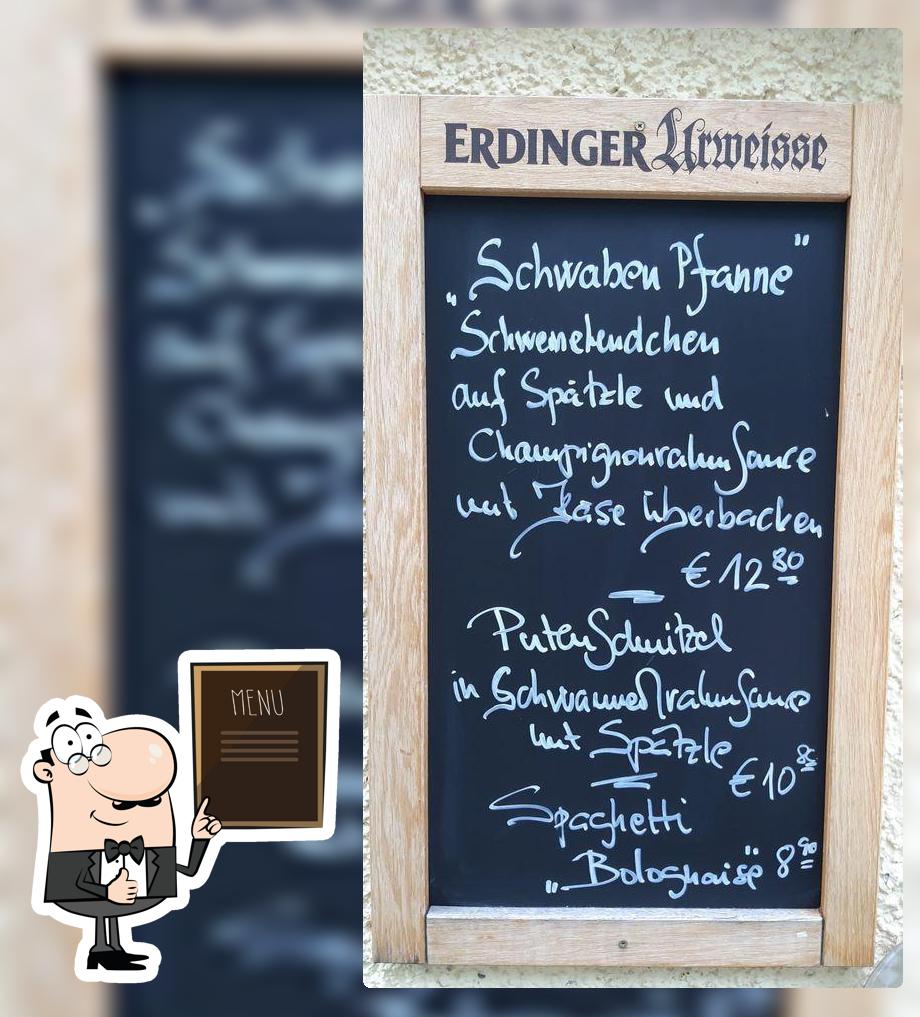 ERDINGER Urweisse
„Schwaben Pfanne"
Schweinelendchen
auf Spätzle und
Champignonrahmsauce
mit Käse überbacken
€ 12 80
Putenschnitzel
in Schwammerlrahmsauce
mit Spätzle
€ 10 85
Spaghetti
„Bolognaise" 8 90
MENU